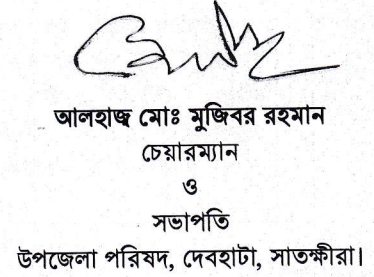 আলহাজ্ব মোঃ মুজিবর রহমান
চেয়ারম্যান
ও
সভাপতি
উপজেলা পরিষদ, দেবহাটা, সাতক্ষীরা।